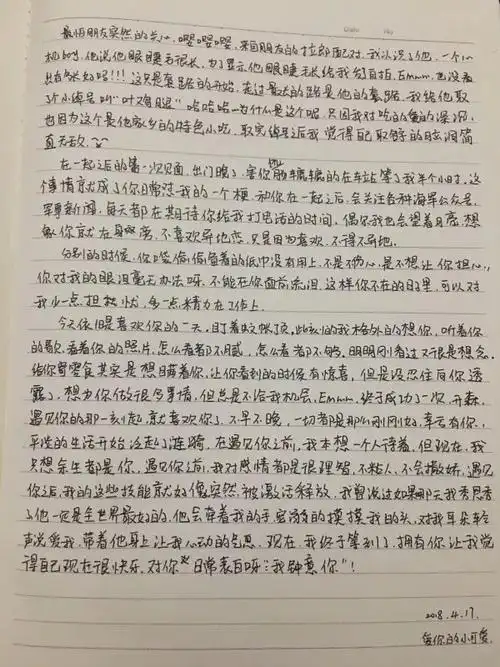 Date No
最怕朋友突然的关心，嘤嘤嘤，来自朋友的拉郎配对，我认识了他，一个
机的时，他说他眼睫毛很长，为了显示他眼睫毛长给我发自拍，Emmm，也没看
出有你好吗!!!这只是套路的开始，走过最大的路是他的套路，我给他取
了个小绰号叫“叶儿粑”哈哈哈～为什么是这个呢，只因我对吃的爱的深沉，
也因为这个是他家乡的特色小吃，取完绰号之后我觉得自己取得的时候简
直无敌
在一起之后的第一次见面，出门晚了，害你的在车站等了我半个小时，这
个事情就成了你日常怼我的一个梗，和你在一起之后，会关注各种海军公众号，
军事新闻，每天都在期待你给我打电话的时间，偶尔我也会望着月亮，想
象你就在身旁，不喜欢异地恋，只是因为喜欢，不得不异地。
分别的时候，你嗲偷偷备着的纸巾没有用上，不是不伤心，是不想让你担心，
你对我的眼泪毫无办法呀，不能在你面前流泪，这样你不在的日里，可以对
我少一点担忧，多一点精力在工作上。
今天依旧是喜欢你的一天，盯着蚊帐顶，此刻的我格外的想你，听着你
的歌，看着你的照片，怎么看都不腻，怎么看都不够，明明刚看过又很是想念，
给你买零食其实是想瞒着你，让你看到的时候有惊喜，但是没忍住向你透
露了，想为你做很多事情，但总是不给我机会，Emmm，终于成功了一次，开森，
遇见你的那一刻起就喜欢你了，不早不晚，一切都是那么刚刚好，幸亏有你，
平淡的生活开始泛起了涟漪，在遇见你之前，我本想一个人待着，但现在，我
只想余生都是你，遇见你之前，我对感情都是很理智，不粘人，不会撒娇，遇见
你之后，我的这些技能就好像突然被激活释放，我曾说过如果那天我秀恩爱
了他一定是全世界最好的，他会牵着我的手，宠溺的摸摸我的头，对我耳朵轻
声说爱我，带着他身上让我心动的气息，现在，我终于等到了，拥有你让我觉
得自己现在很快乐，对你“日常表白呀：我钟意你”！
2018.4.17.
爱你的小可爱